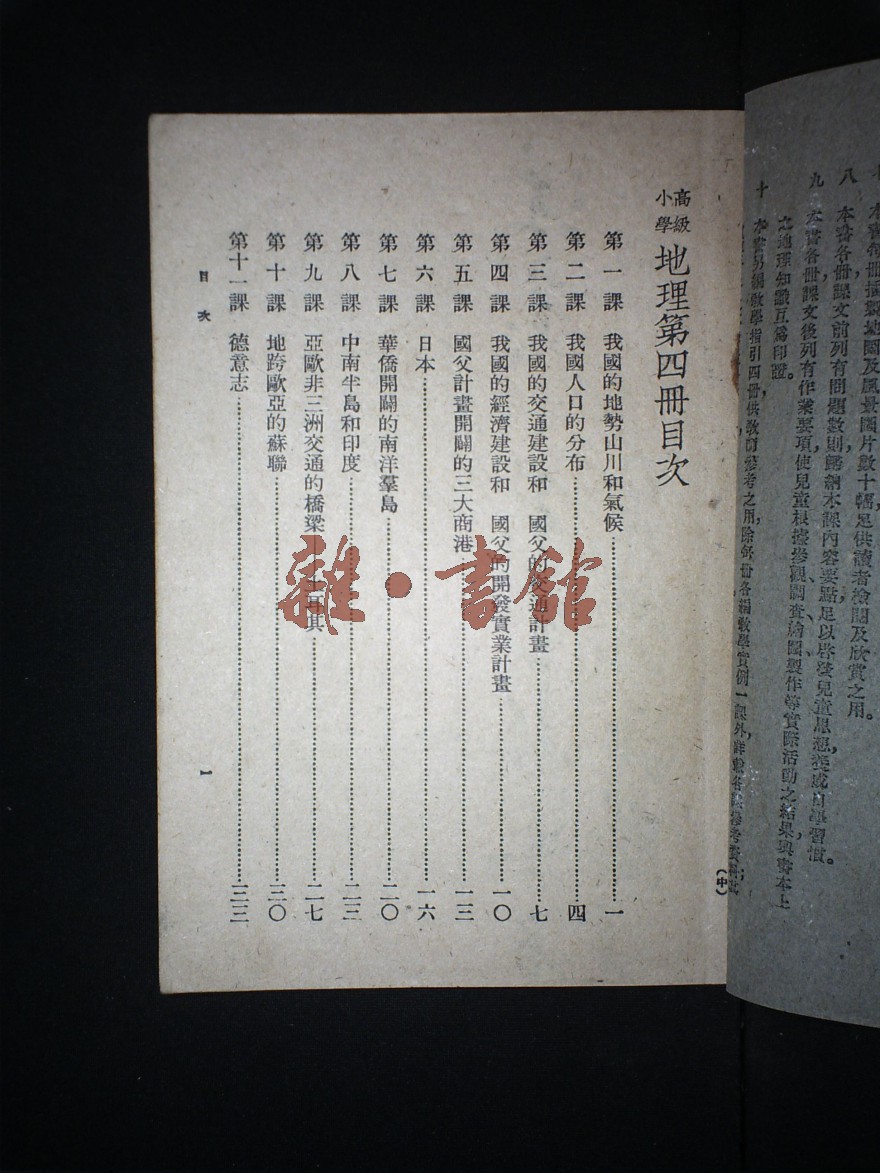 本書各冊課文前列有問題數則歸納本課內容要點足以啓發兒童思想養成自學習慣。
九 本書各冊課文後列有作業要項使兒童根據參觀調查繪圖製作等實際活動之結果與書本上
之地理知識互爲印證。
十 本書另編教學指引四冊，供教師參考之用，除每冊各編教學實例一課外，
(中)
高級小學 地理第四冊目次
第一課 我國的地勢山川和氣候 一
第二課 我國人口的分布 四
第三課 我國的交通建設和 國父的交通計畫 七
第四課 我國的經濟建設和 國父的開發實業計畫 一〇
第五課 國父計畫開闢的三大商港 一三
第六課 日本 一六
第七課 華僑開闢的南洋羣島 二〇
第八課 中南半島和印度 二三
第九課 亞歐非三洲交通的橋梁——土耳其 二七
第十課 地跨歐亞的蘇聯 三〇
第十一課 德意志 三三
目次
一
雜·書館